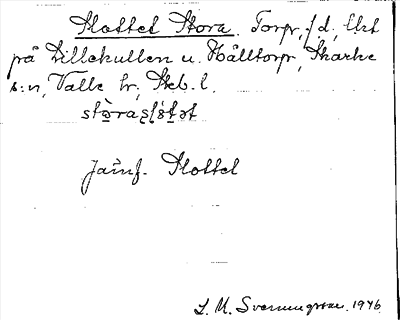 Slottet Stora. Torp, f.d., låg
på Lillekullen u. Hälltorp, Skarke
s:n, Valle hr, Skb. l.
Jämf. Slottet
S. M. Svenungsson. 1946